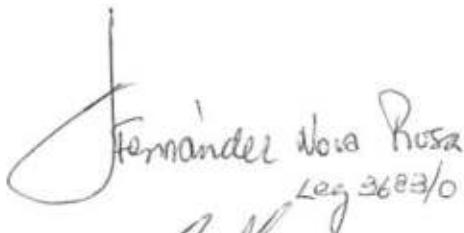 Fernández Nora Rosa
Leg 3683/0